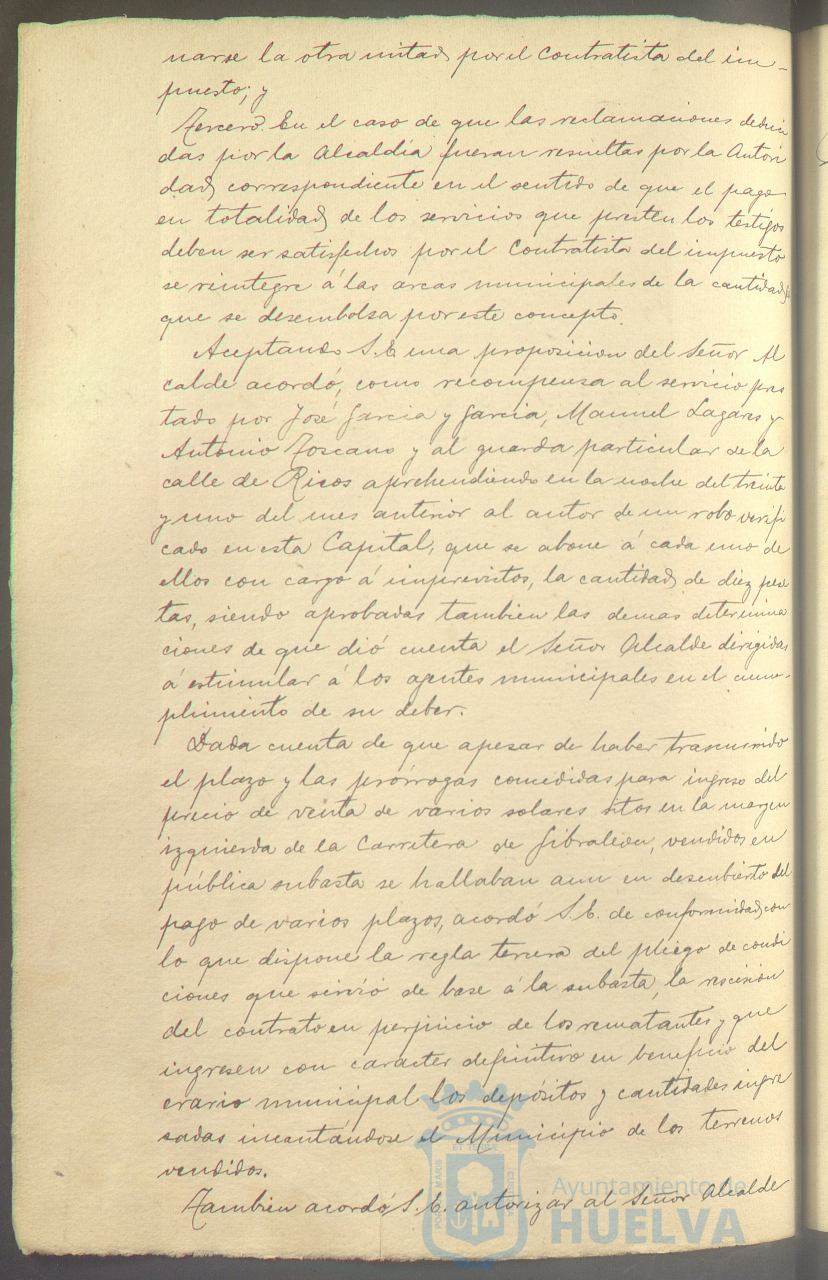 narse la otra mitad por el Contratista del im-
puesto; y
Tercero. En el caso de que las reclamaciones deduci
das por la Alcaldia fueran resueltas por la Autori
dad correspondiente en el sentido de que el pago
en totalidad de los servicios que presten los testigos
deben ser satisfechos por el Contratista del impuesto
se reintegre á las arcas municipales de la cantidad
que se desembolsa por este concepto.
Aceptando S.E. una proposicion del Señor Al
calde acordó, como recompensa al servicio pres
tado por José Garcia y Garcia, Manuel Lagares y
Antonio Toscano y al guarda particular de la
calle de Ricos aprehendiendo en la noche del treinta
y uno del mes anterior al autor de un robo verifi
cado en esta Capital, que se abone á cada uno de
ellos con cargo á imprevistos, la cantidad de diez pese
tas, siendo aprobadas tambien las demas determina
ciones de que dió cuenta el Señor Alcalde dirigidas
á estimular á los agentes municipales en el cum-
plimiento de su deber.
Dada cuenta de que apesar de haber trascurrido
el plazo y las prórrogas concedidas para ingreso del
precio de venta de varios solares sitos en la margen
izquierda de la Carretera de Gibraleon, vendidos en
pública subasta se hallaban aun en descubierto del
pago de varios plazos, acordó S.E. de conformidad con
lo que dispone la regla tercera del pliego de condi
ciones que sirvió de base á la subasta, la rescision
del contrato en perjuicio de los rematantes y que
ingresen con caracter definitivo en beneficio del
erario municipal los depósitos y cantidades ingre
sadas incantándose el Municipio de los terrenos
vendidos.
Tambien acordó S.E. autorizar al Señor Alcalde
Ayuntamiento de
HUELVA